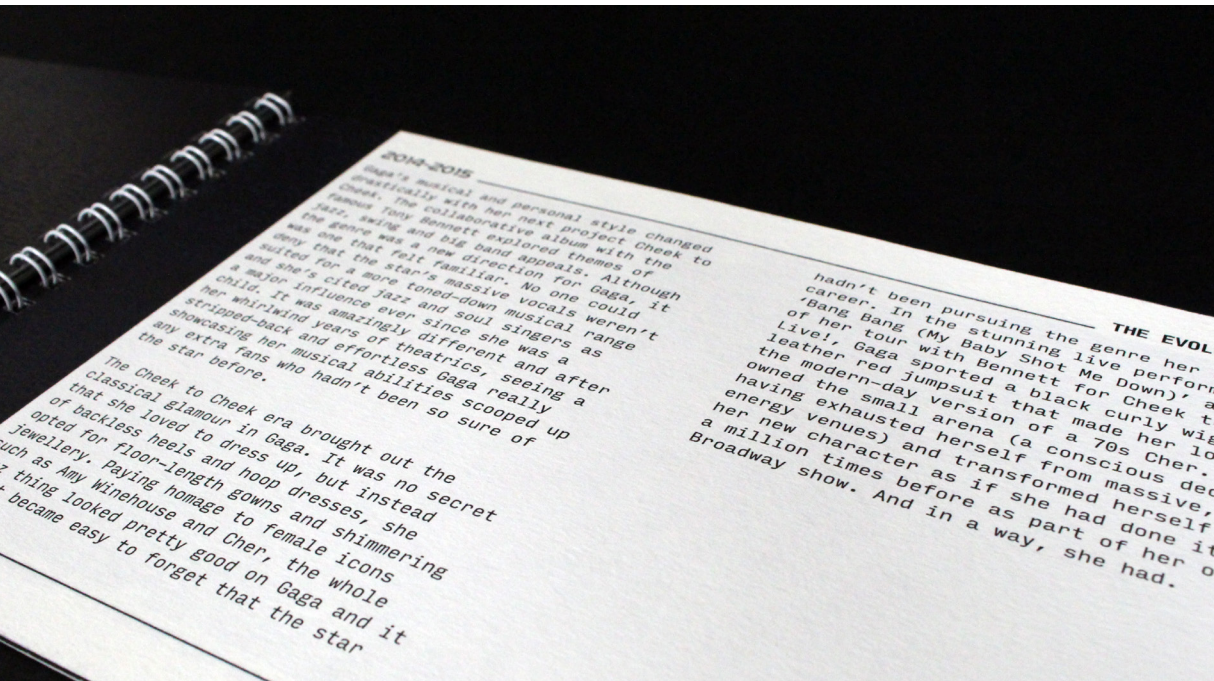 2014-2015
THE EVOL
Gaga's musical and personal style changed
drastically with her next project Cheek to
Cheek. The collaborative album with the
famous Tony Bennett explored themes of
jazz, swing and big band appeals. Although
the genre was a new direction for Gaga, it
was one that felt familiar. No one could
deny that the star's massive vocals weren't
suited for a more toned-down musical range
and she's cited jazz and soul singers as
a major influence ever since she was a
child. It was amazingly different and after
her whirlwind years of theatrics, seeing a
stripped-back and effortless Gaga really
showcasing her musical abilities scooped up
any extra fans who hadn't been so sure of
the star before.
The Cheek to Cheek era brought out the
classical glamour in Gaga. It was no secret
that she loved to dress up, but instead
of backless heels and hoop dresses, she
opted for floor-length gowns and shimmering
jewellery. Paying homage to female icons
such as Amy Winehouse and Cher, the whole
z thing looked pretty good on Gaga and it
became easy to forget that the star
hadn't been pursuing the genre her
career. In the stunning live perform
'Bang Bang (My Baby Shot Me Down)' a
of her tour with Bennett for Cheek t
Live!, Gaga sported a black curly wig
leather red jumpsuit that made her lo
the modern-day version of a 70s Cher.
owned the small arena (a conscious dec
having exhausted herself from massive,
energy venues) and transformed herself
her new character as if she had done it
a million times before as part of her o
Broadway show. And in a way, she had.